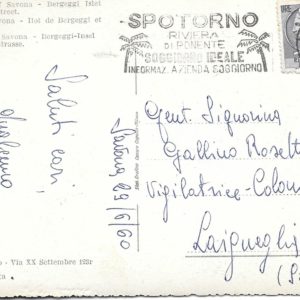 Savona - Bergeggi Islet
Street.
Savona - Ilot de Bergeggi et
Savona - Bergeggi-Insel
strasse.
SPOTORNO
RIVIERA
DI PONENTE
SOGGIORNO IDEALE
INFORMAZ. AZIENDA SOGGIORNO
Saluti cari,
Savona 29/6/60
Gent. Signorina
Gallino Rosett
Vigilatrice-Colon
Laigueglia
o - Via XX Settembre 123r